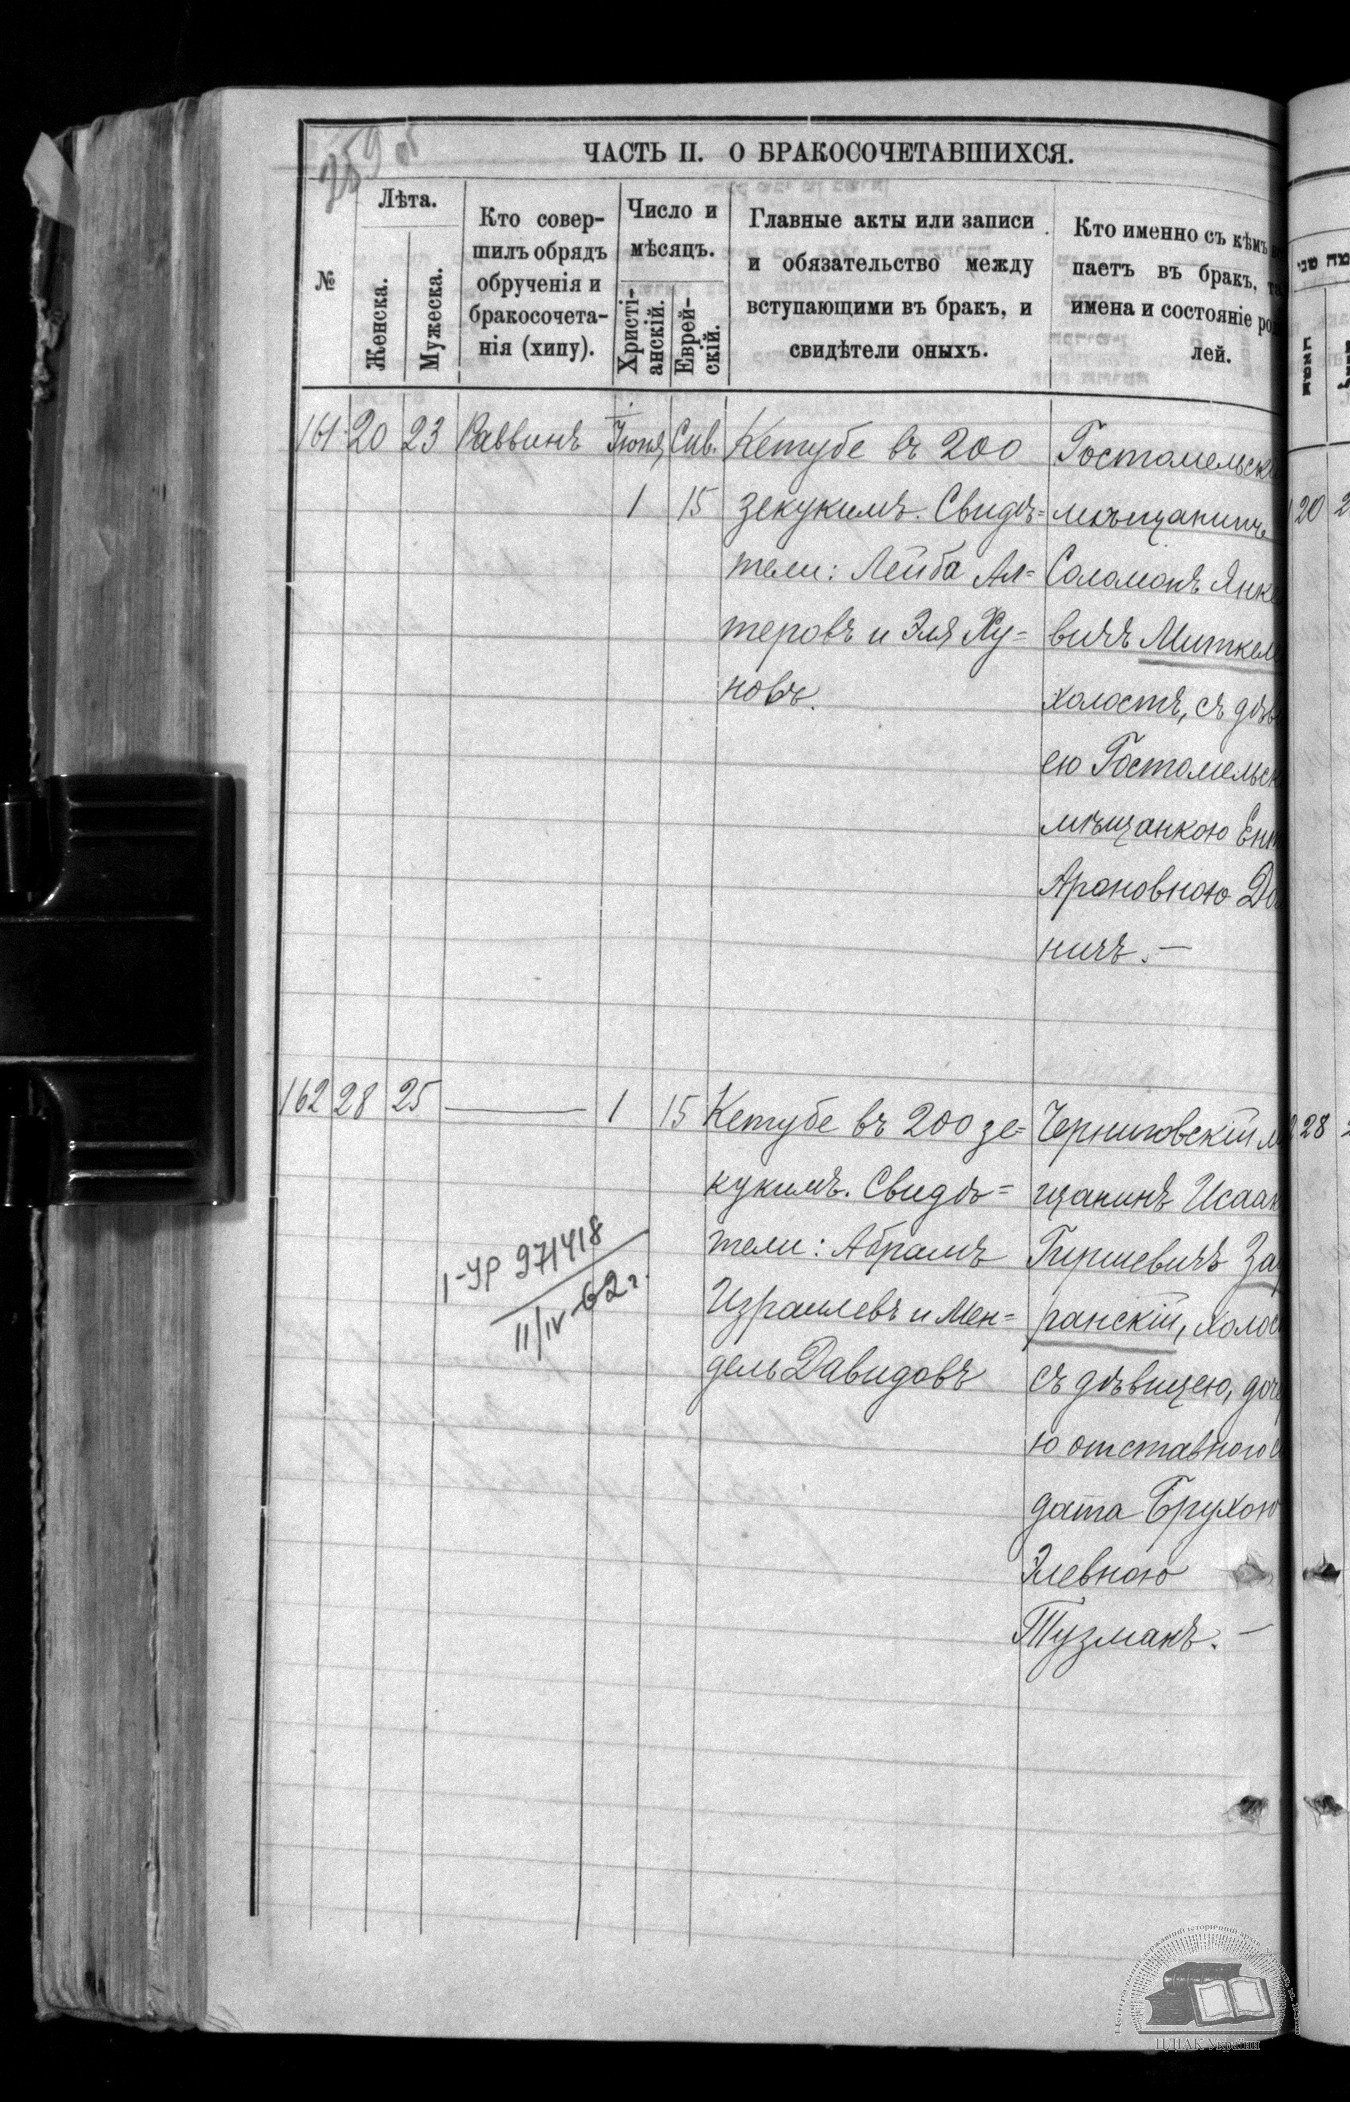 259 об
ЧАСТЬ II. О БРАКОСОЧЕТАВШИХСЯ.
№
Лѣта.
Женска.
Мужеска.
Кто совер-
шилъ обрядъ
обрученія и
бракосочета-
нія (хипу).
Число и
мѣсяцъ.
Христі-
анскій.
Еврей-
скій.
Главные акты или записи
и обязательство между
вступающими въ бракъ, и
свидѣтели оныхъ.
Кто именно съ кѣмъ
паетъ въ бракъ,
имена и состояніе
лей.
161 20 23 Раввинъ Іюня Сив.
1 15
Кетубе въ 200
зекукимъ. Свидѣ=
тели: Лейба Ал=
теровъ и Эля Ху=
новъ.
Гостомельскі
мѣщанинъ
Соломонъ Янке
вичъ Миткел
холостъ, съ дѣв
ею Гостомельск
мѣщанкою Ент
Ароновною До
ничъ. —
162 28 25 — 1 15
Кетубе въ 200 зе=
кукимъ. Свидѣ=
тели: Абрамъ
Израилевъ и Мен=
дель Давидовъ
Черниговскій м
щанинъ Исаак
Гиршевичъ За
ранскій, холос
съ дѣвицею, доч
ю отставного с
дата Брухою
Элевною
Тузманъ. —
I-УР 971418
11/IV-62 г.
20 2
28 2
ЦДІАК України